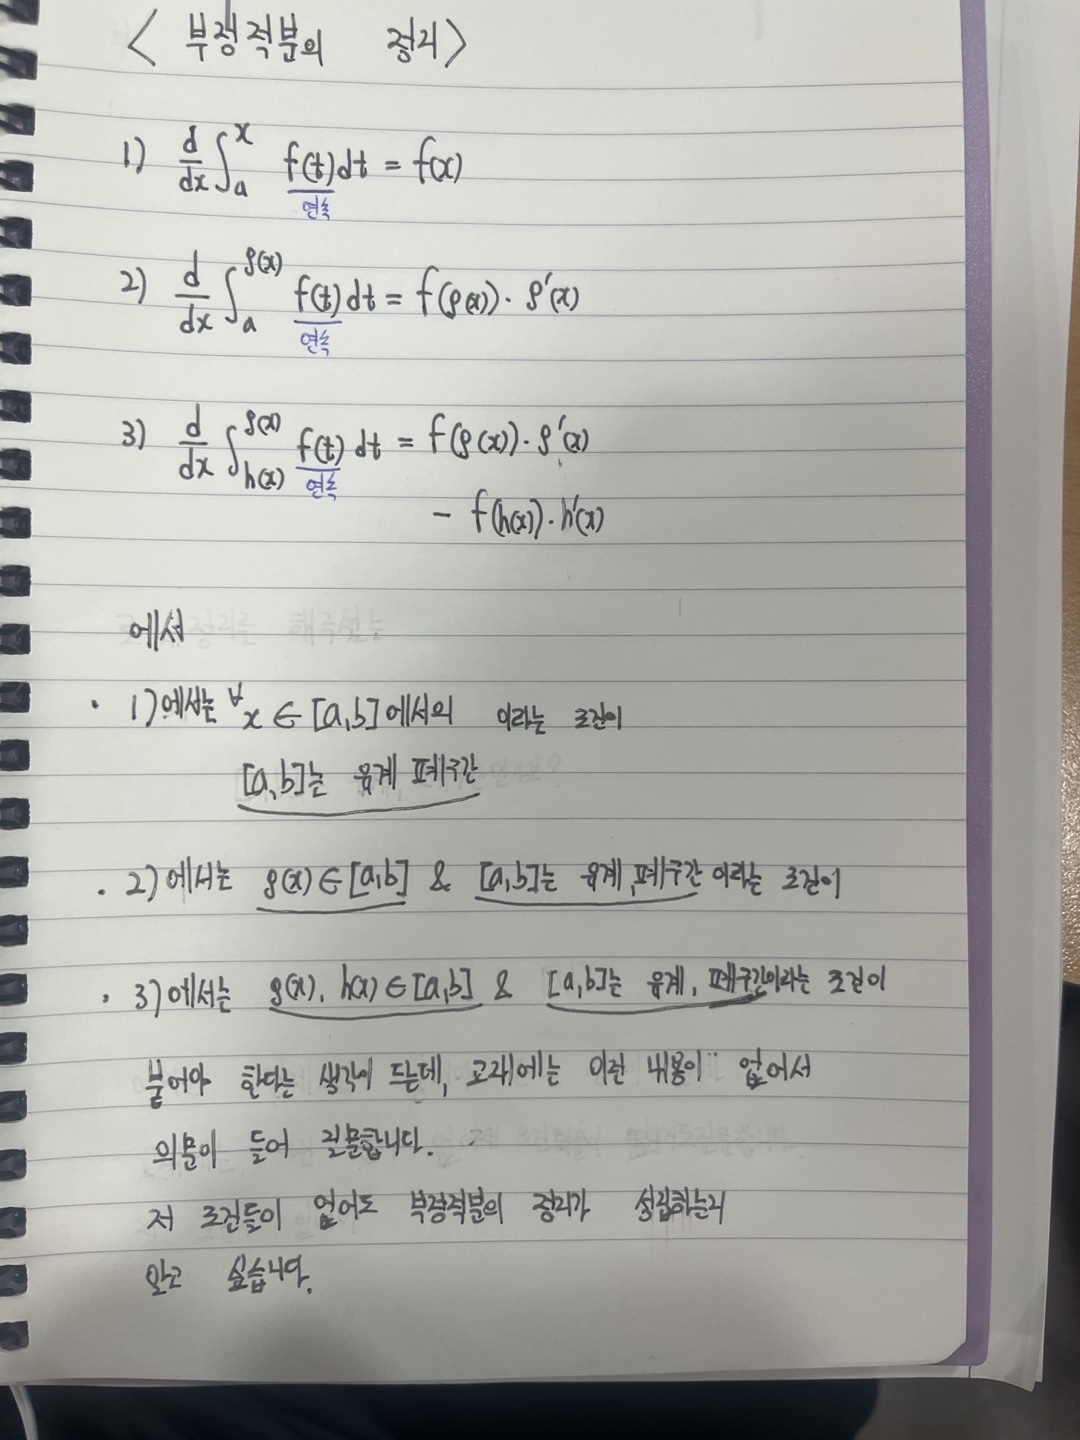 < 부정적분의 정리 >
1) d/dx ∫_a^x f(t)dt = f(x)
연속
2) d/dx ∫_a^{g(x)} f(t)dt = f(g(x))·g'(x)
연속
3) d/dx ∫_{h(x)}^{g(x)} f(t)dt = f(g(x))·g'(x)
연속
- f(h(x))·h'(x)
에서
· 1)에서는 ∀x ∈ [a,b]에서의 이라는 조건이
[a,b]는 유계 폐구간
· 2)에서는 g(x)∈[a,b] & [a,b]는 유계, 폐구간 이라는 조건이
· 3)에서는 g(x), h(x)∈[a,b] & [a,b]는 유계, 폐구간이라는 조건이
붙어야 한다는 생각이 드는데, 교재에는 이런 내용이 없어서
의문이 들어 질문합니다.
저 조건들이 없어도 부정적분의 정리가 성립하는지
알고 싶습니다.